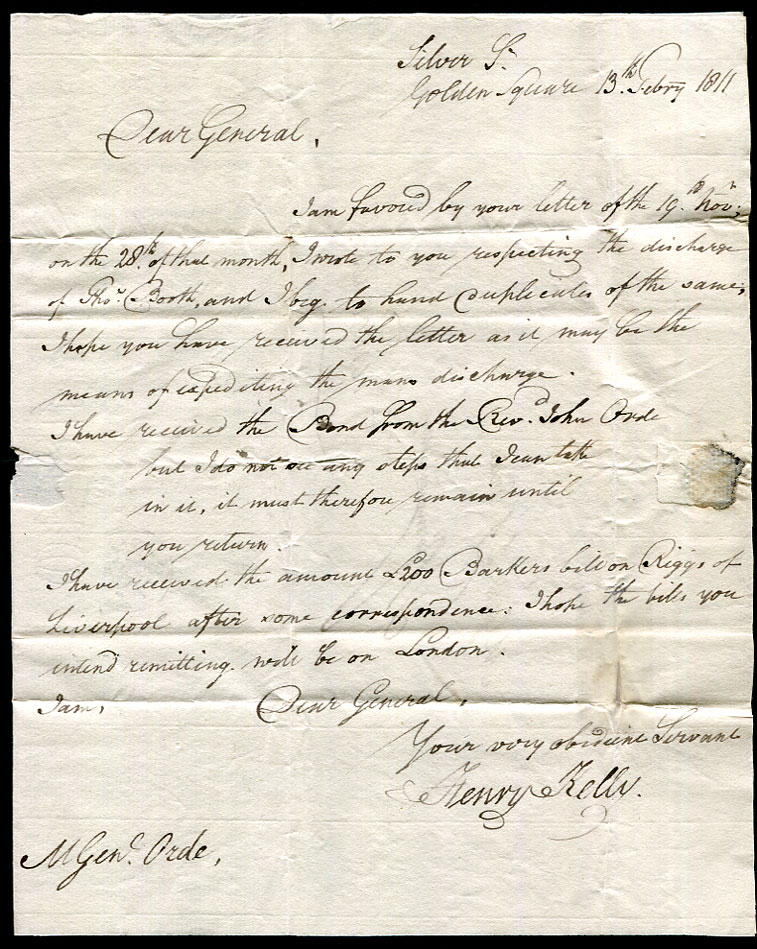 Silver St.
Golden Square 13th. Febry 1811
Dear General,
I am favored by your letter of the 19th. Novr;
on the 28th. of that month, I wrote to you respecting the discharge
of Thos. Booth, and I beg to hand duplicates of the same,
I hope you have received the letter as it may be the
means of expediting the mans discharge.
I have received the Bond from the Revd. John Orde
but I do not see any steps that I can take
in it, it must therefore remain until
you return.
I have received the amount £200 Barkers bill on Riggs of
Liverpool after some correspondence: I hope the bills you
intend remitting will be on London.
I am, Dear General,
Your very obedient Servant
Henry Kelly.
M Genl. Orde,